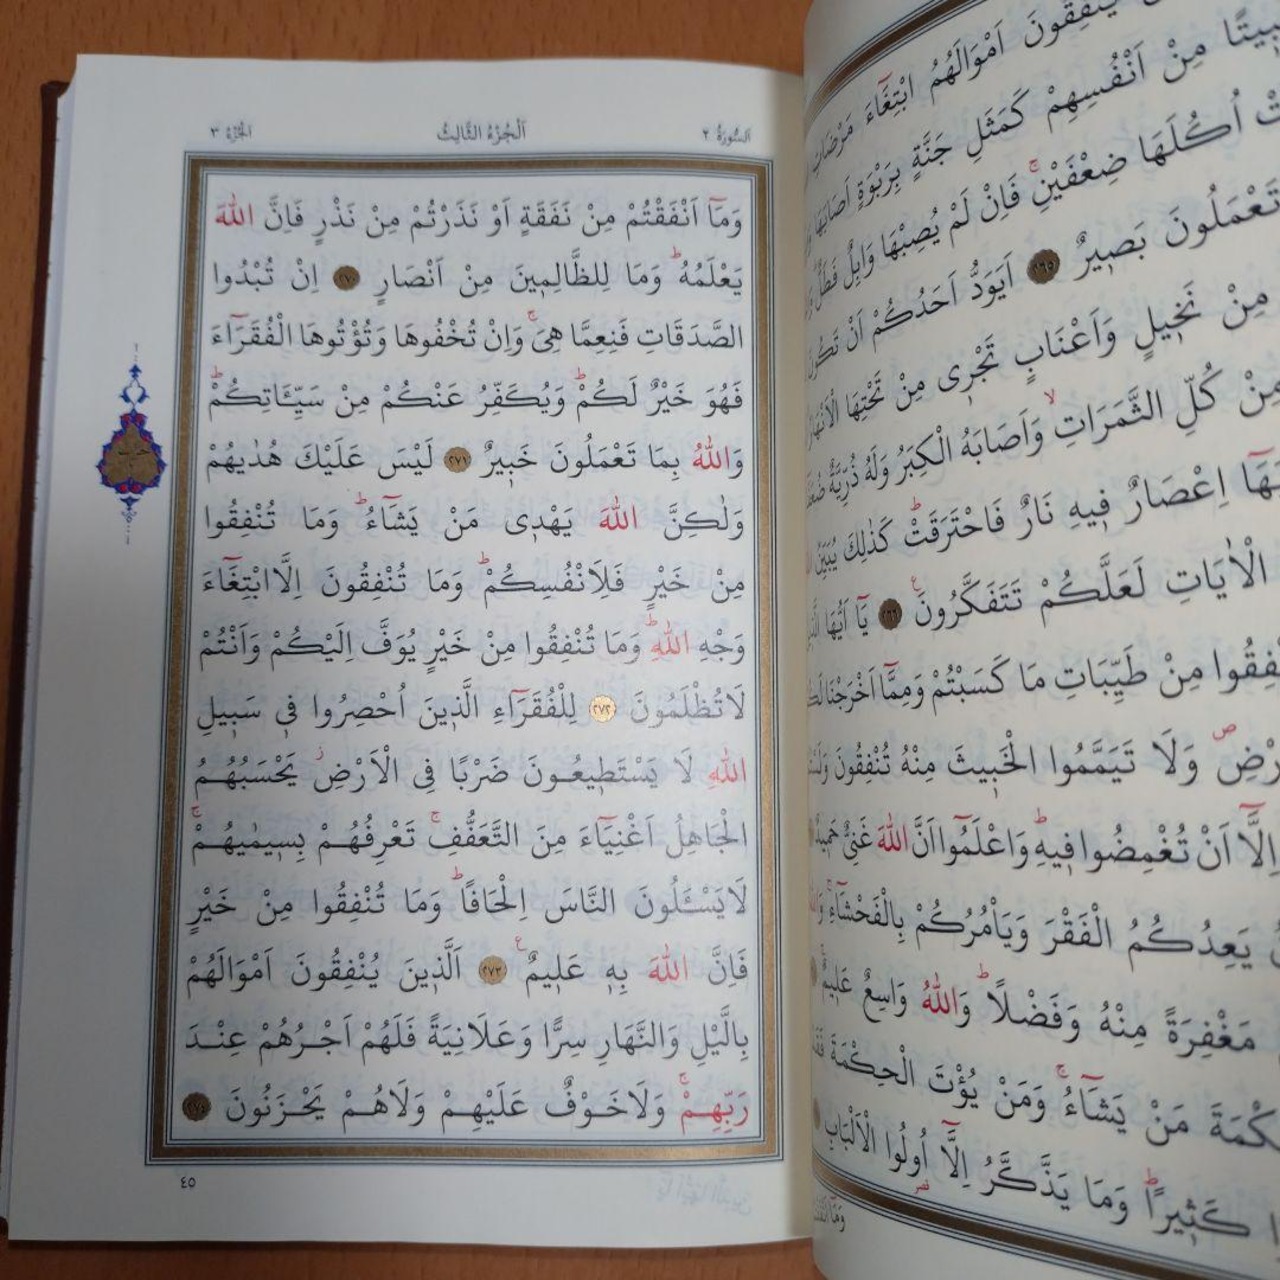 ينفقون اَمْوَالَهُمُ ابْتِغَٓاءَ مَرْضَاتِ
مِنْ اَنْفُسِهِمْ كَمَثَلِ جَنَّةٍ بِرَبْوَةٍ اَصَابَهَا
اُكُلَهَا ضِعْفَيْنِۚ فَاِنْ لَمْ يُصِبْهَا وَابِلٌ فَطَلٌّ
تَعْمَلُونَ بَصِيرٌ ﴿٢٦٥﴾ اَيَوَدُّ اَحَدُكُمْ اَنْ تَكُونَ
مِنْ نَخِيلٍ وَاَعْنَابٍ تَجْرِى مِنْ تَحْتِهَا الْاَنْهَارُ
مِنْ كُلِّ الثَّمَرَاتِۙ وَاَصَابَهُ الْكِبَرُ وَلَهُ ذُرِّيَّةٌ
اِعْصَارٌ فِيهِ نَارٌ فَاحْتَرَقَتْۜ كَذٰلِكَ يُبَيِّنُ
الْاٰيَاتِ لَعَلَّكُمْ تَتَفَكَّرُونَ۟ ﴿٢٦٦﴾ يَٓا اَيُّهَا
مِنْ طَيِّبَاتِ مَا كَسَبْتُمْ وَمِمَّٓا اَخْرَجْنَا
وَلَا تَيَمَّمُوا الْخَبِيثَ مِنْهُ تُنْفِقُونَ
اِلَّٓا اَنْ تُغْمِضُوا فِيهِۜ وَاعْلَمُٓوا اَنَّ اللّٰهَ غَنِىٌّ حَمِيدٌ
يَعِدُكُمُ الْفَقْرَ وَيَاْمُرُكُمْ بِالْفَحْشَٓاءِۚ
مَغْفِرَةً مِنْهُ وَفَضْلًاۜ وَاللّٰهُ وَاسِعٌ عَلِيمٌ
مَنْ يَشَٓاءُۚ وَمَنْ يُؤْتَ الْحِكْمَةَ
كَثِيرًاۜ وَمَا يَذَّكَّرُ اِلَّٓا اُولُوا الْاَلْبَابِ
اَلسُّورَةُ ٢ اَلْجُزْءُ الثَّالِثُ اَلْجُزْءُ ٣
وَمَٓا اَنْفَقْتُمْ مِنْ نَفَقَةٍ اَوْ نَذَرْتُمْ مِنْ نَذْرٍ فَاِنَّ اللّٰهَ
يَعْلَمُهُۜ وَمَا لِلظَّالِمِينَ مِنْ اَنْصَارٍ ﴿٢٧٠﴾ اِنْ تُبْدُوا
الصَّدَقَاتِ فَنِعِمَّا هِىَۚ وَاِنْ تُخْفُوهَا وَتُؤْتُوهَا الْفُقَرَٓاءَ
فَهُوَ خَيْرٌ لَكُمْۜ وَيُكَفِّرُ عَنْكُمْ مِنْ سَيِّـَٔاتِكُمْۜ
وَاللّٰهُ بِمَا تَعْمَلُونَ خَبِيرٌ ﴿٢٧١﴾ لَيْسَ عَلَيْكَ هُدٰيهُمْ
وَلٰكِنَّ اللّٰهَ يَهْدِى مَنْ يَشَٓاءُۜ وَمَا تُنْفِقُوا
مِنْ خَيْرٍ فَلِاَنْفُسِكُمْۜ وَمَا تُنْفِقُونَ اِلَّا ابْتِغَٓاءَ
وَجْهِ اللّٰهِۜ وَمَا تُنْفِقُوا مِنْ خَيْرٍ يُوَفَّ اِلَيْكُمْ وَاَنْتُمْ
لَا تُظْلَمُونَ ﴿٢٧٢﴾ لِلْفُقَرَٓاءِ الَّذِينَ اُحْصِرُوا فِى سَبِيلِ
اللّٰهِ لَا يَسْتَطِيعُونَ ضَرْبًا فِى الْاَرْضِۘ يَحْسَبُهُمُ
الْجَاهِلُ اَغْنِيَٓاءَ مِنَ التَّعَفُّفِۚ تَعْرِفُهُمْ بِسِيمٰيهُمْۚ
لَا يَسْـَٔلُونَ النَّاسَ اِلْحَافًاۜ وَمَا تُنْفِقُوا مِنْ خَيْرٍ
فَاِنَّ اللّٰهَ بِهِ عَلِيمٌ۟ ﴿٢٧٣﴾ اَلَّذِينَ يُنْفِقُونَ اَمْوَالَهُمْ
بِالَّيْلِ وَالنَّهَارِ سِرًّا وَعَلَانِيَةً فَلَهُمْ اَجْرُهُمْ عِنْدَ
رَبِّهِمْۚ وَلَا خَوْفٌ عَلَيْهِمْ وَلَا هُمْ يَحْزَنُونَ ﴿٢٧٤﴾
٤٥